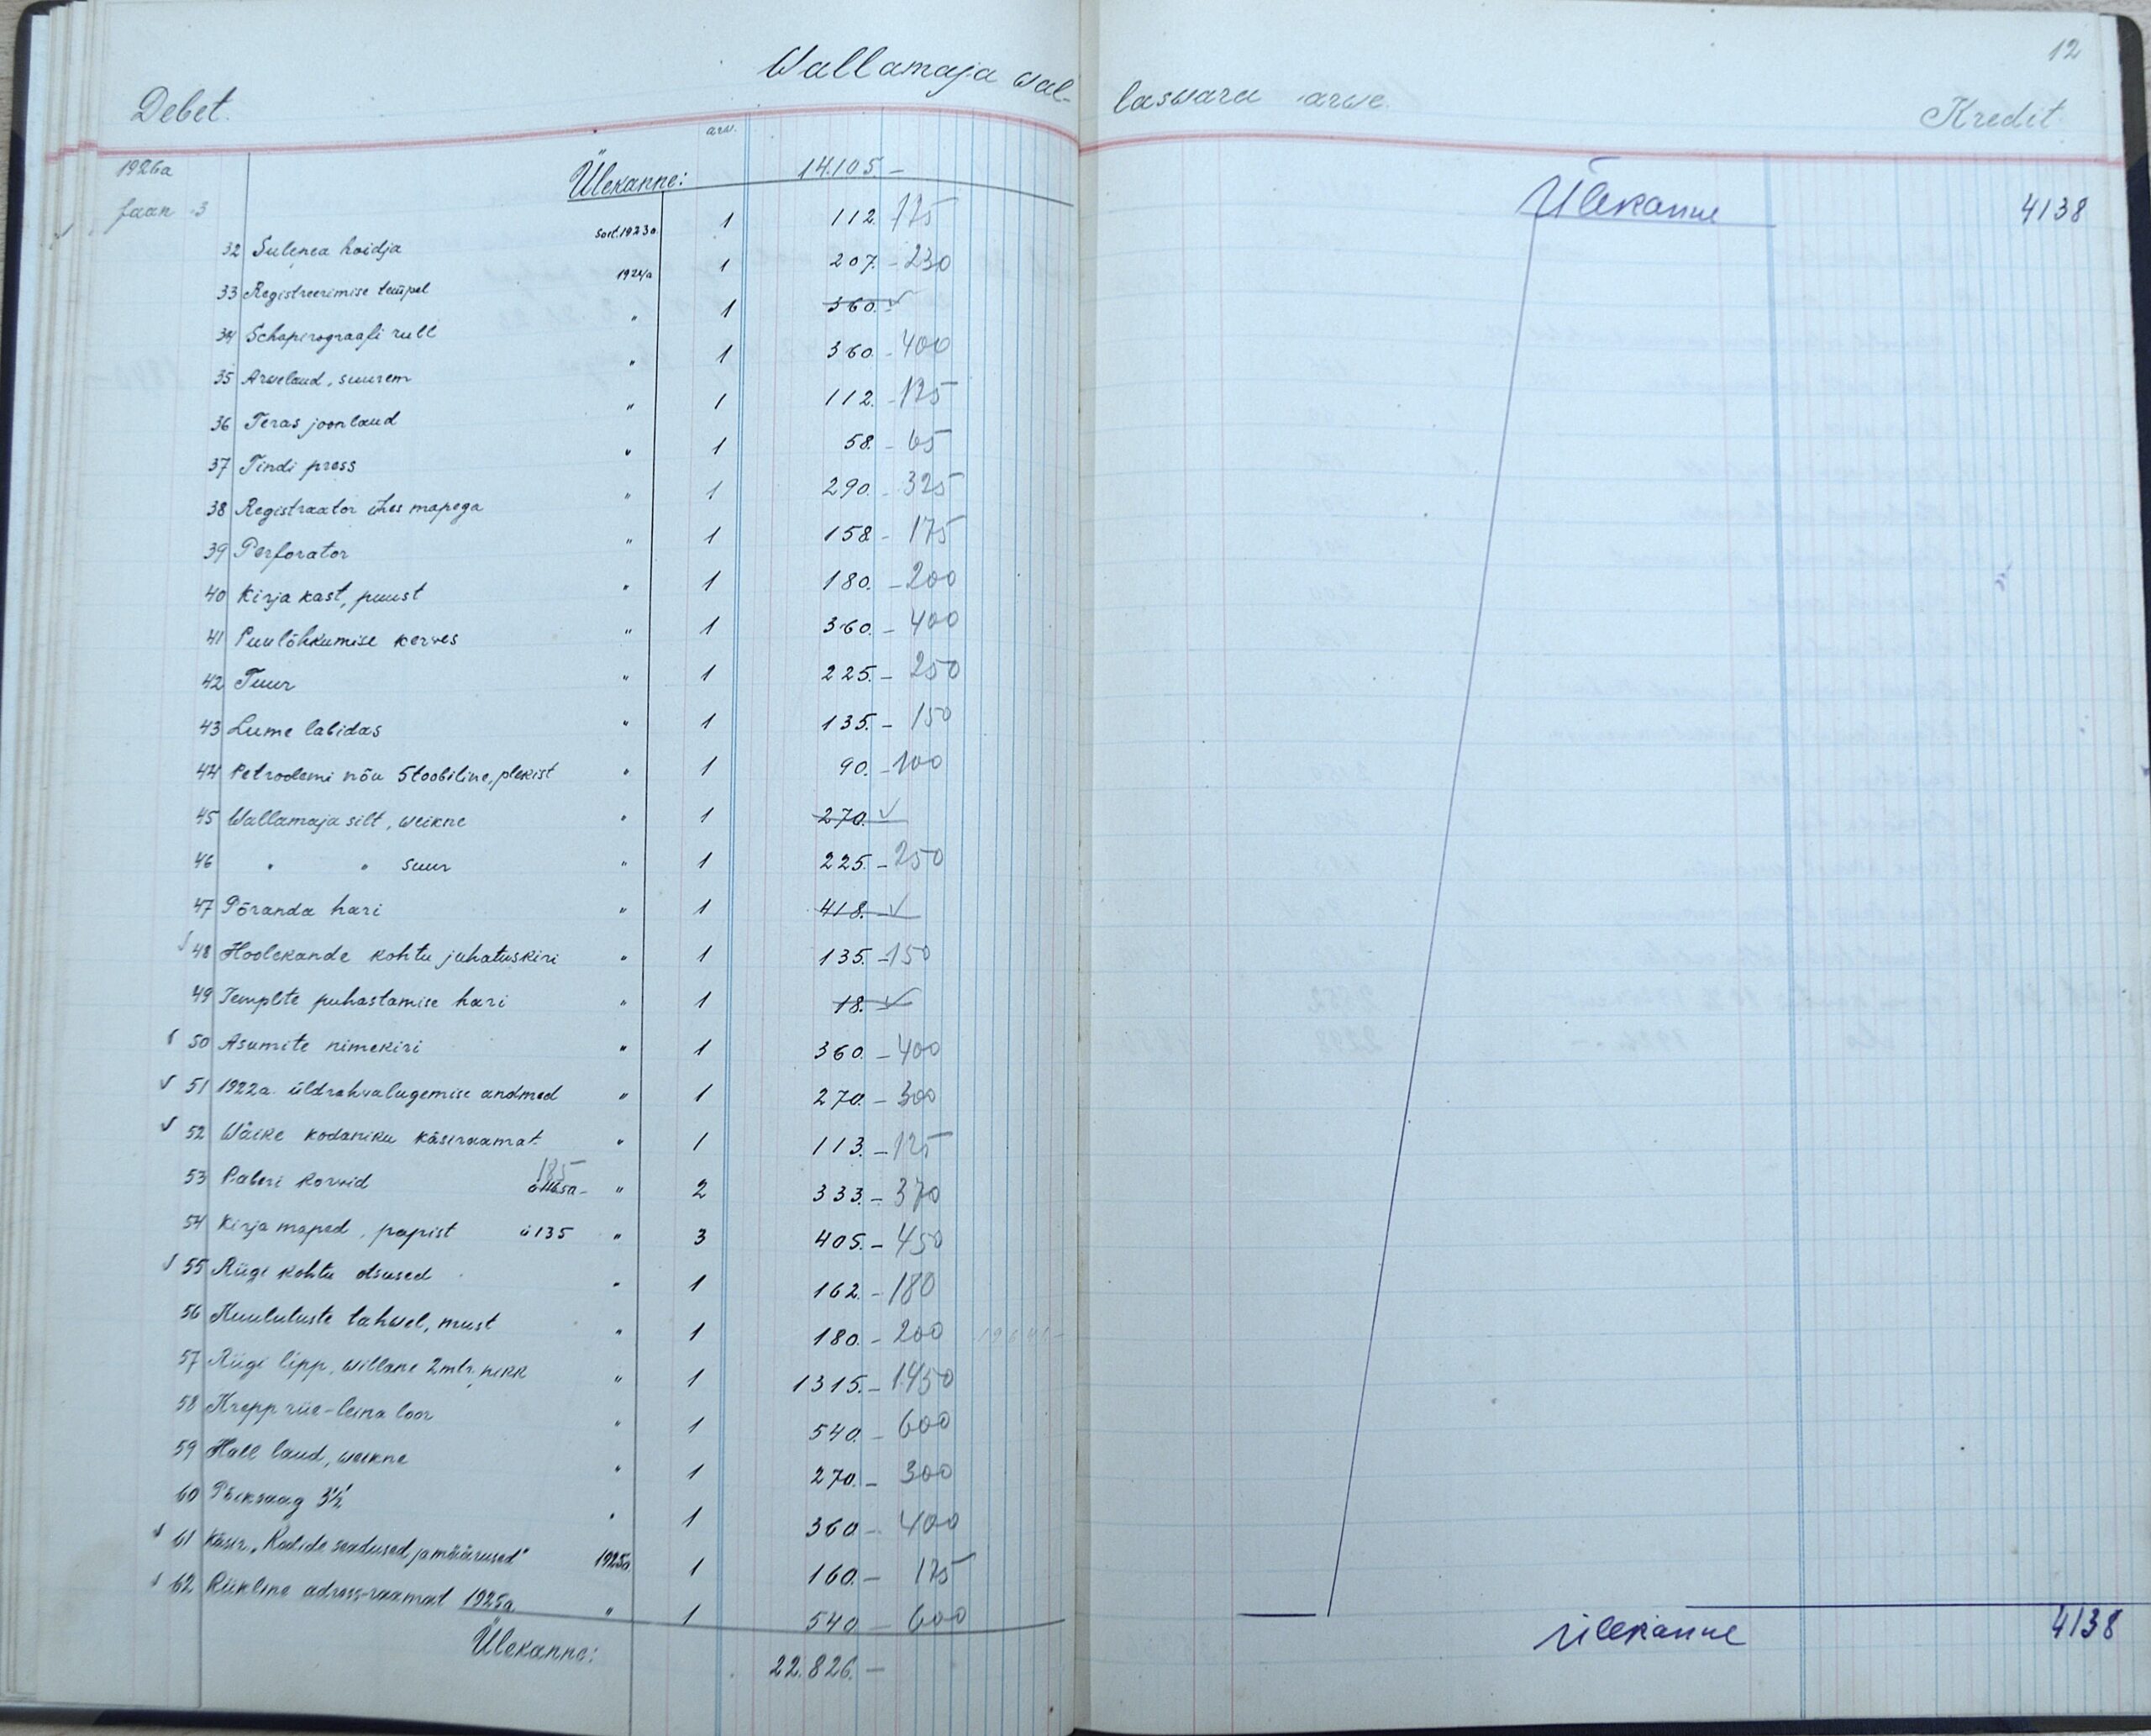 12
Wallamaja wal- laswara arwe.
Debet. Kredit.
arw.
1926a Ülekanne: 14.105.-
Jaan 3
32 Sulepea hoidja soet. 1923a 1 112. 125
33 Registreerimise tempel 1924a 1 207.- 230
34 Schapirograafi rull " 1 360.-
35 Arwelaud, suurem " 1 360.- 400
36 Teras joonlaud " 1 112.- 125
37 Tindi press " 1 58.- 65
38 Registraator ühes mapega " 1 290.- 325
39 Perforator " 1 158- 175
40 Kirja kast, puust " 1 180.- 200
41 Puulõhkumise kerves " 1 360.- 400
42 Tuur " 1 225.- 250
43 Lume labidas " 1 135.- 150
44 Petrooleumi nõu 5 toobiline, plekist " 1 90.- 100
45 Wallamaja silt, weikne " 1 270.
46 " " suur " 1 225.- 250
47 Põranda hari " 1 418.-
48 Hoolekande kohtu juhatuskiri " 1 135.- 150
49 Templite puhastamise hari " 1 18.-
50 Asumite nimekiri " 1 360.- 400
51 1922a. üldrahvalugemise andmed " 1 270.- 300
52 Wäike kodaniku käsiraamat " 1 113.- 125
53 Paberi korvid 185 " 2 333.- 370
54 Kirja maped, papist à 135 " 3 405.- 450
55 Riigi kohtu otsused " 1 162.- 180
56 Kuulutuste tahwel, must " 1 180.- 200
57 Riigi lipp, willane 2mtr. pikk " 1 1315.- 1450
58 Krepp riie-leina loor " 1 540.- 600
59 Hall laud, weikne " 1 270.- 300
60 Põiksaag 3½' " 1 360- 400
61 Käsir. „Radide seadused ja määrused" 1925a. 1 160.- 175
62 Riikline adress-raamat 1925a. " 1 540- 600
Ülekanne: 22.826.-
Ülekanne 4138
Ülekanne 4138